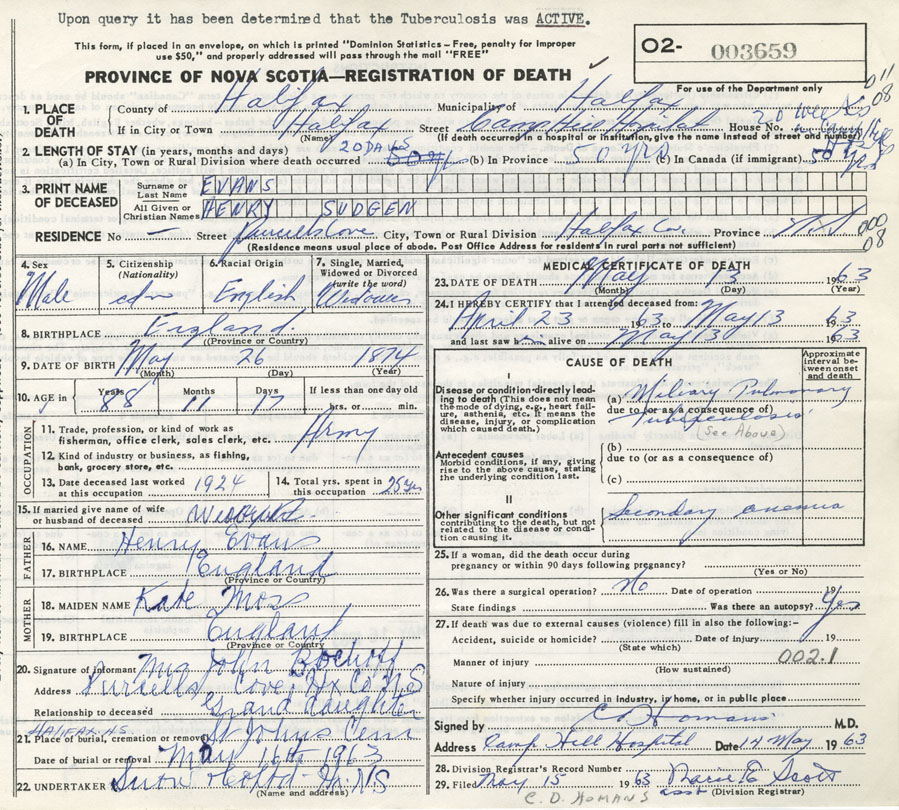 Upon query it has been determined that the Tuberculosis was ACTIVE.
This form, if placed in an envelope, on which is printed "Dominion Statistics – Free, penalty for improper
use $50," and properly addressed will pass through the mail "FREE"
O2- 003659
PROVINCE OF NOVA SCOTIA—REGISTRATION OF DEATH
For use of the Department only
1. PLACE OF DEATH
County of Halifax Municipality of Halifax
If in City or Town Halifax Street Camp Hill House No.
(Name) (If death occurred in a hospital or institution, give the name instead of street and number)
2. LENGTH OF STAY (in years, months and days)
(a) In City, Town or Rural Division where death occurred 20 DAYS (b) In Province 50 yrs (c) In Canada (if immigrant) 50 yrs
3. PRINT NAME OF DECEASED
Surname or Last Name EVANS
All Given or Christian Names HENRY SUDGEN
RESIDENCE No — Street Purcells Cove City, Town or Rural Division Halifax Co. Province N.S
(Residence means usual place of abode. Post Office Address for residents in rural parts not sufficient)
000
08
4. Sex Male
5. Citizenship (Nationality) cdn
6. Racial Origin English
7. Single, Married, Widowed or Divorced (write the word) Widower
8. BIRTHPLACE England.
(Province or Country)
9. DATE OF BIRTH May 26 1874
(Month) (Day) (Year)
10. AGE in Years 88 Months 11 Days 17 If less than one day old hrs. or min.
OCCUPATION
11. Trade, profession, or kind of work as fisherman, office clerk, sales clerk, etc. Army
12. Kind of industry or business, as fishing, bank, grocery store, etc.
13. Date deceased last worked at this occupation 1924
14. Total yrs. spent in this occupation 25 yrs
15. If married give name of wife or husband of deceased
FATHER
16. NAME Henry Evans
17. BIRTHPLACE England
(Province or Country)
MOTHER
18. MAIDEN NAME Kate Moss
19. BIRTHPLACE England
(Province or Country)
20. Signature of informant Mrs John
Address Purcells Cove, Hx Co N.S
Relationship to deceased Grand daughter
HALIFAX NS
21. Place of burial, cremation or removal St Johns Cem
Date of burial or removal May 16th 1963
22. UNDERTAKER Snow
(Name and address)
MEDICAL CERTIFICATE OF DEATH
23. DATE OF DEATH May 13 1963
(Month) (Day) (Year)
24. I HEREBY CERTIFY that I attended deceased from:
April 23 1963 to May 13 1963
and last saw him alive on May 13 1963
CAUSE OF DEATH
Approximate interval between onset and death
I
Disease or condition directly leading to death (This does not mean the mode of dying, e.g., heart failure, asthenia, etc. It means the disease, injury, or complication which caused death.)
(a) Miliary Pulmonary
due to (or as a consequence of)
Tuberculosis
(See Above)
Antecedent causes
Morbid conditions, if any, giving rise to the above cause, stating the underlying condition last.
(b)
due to (or as a consequence of)
(c)
II
Other significant conditions
contributing to the death, but not related to the disease or condition causing it.
Secondary anemia
25. If a woman, did the death occur during pregnancy or within 90 days following pregnancy?
(Yes or No)
26. Was there a surgical operation? No Date of operation 19
State findings Was there an autopsy? Yes
27. If death was due to external causes (violence) fill in also the following:-
Accident, suicide or homicide? Date of injury 19
(State which)
002.1
Manner of injury
(How sustained)
Nature of injury
Specify whether injury occurred in industry, in home, or in public place
Signed by C D Homans M.D.
Address Camp Hill Hospital Date 14 May 1963
28. Division Registrar's Record Number
29. Filed May 15 1963 Marie E Scott
asst (Division Registrar)
C. D. HOMANS